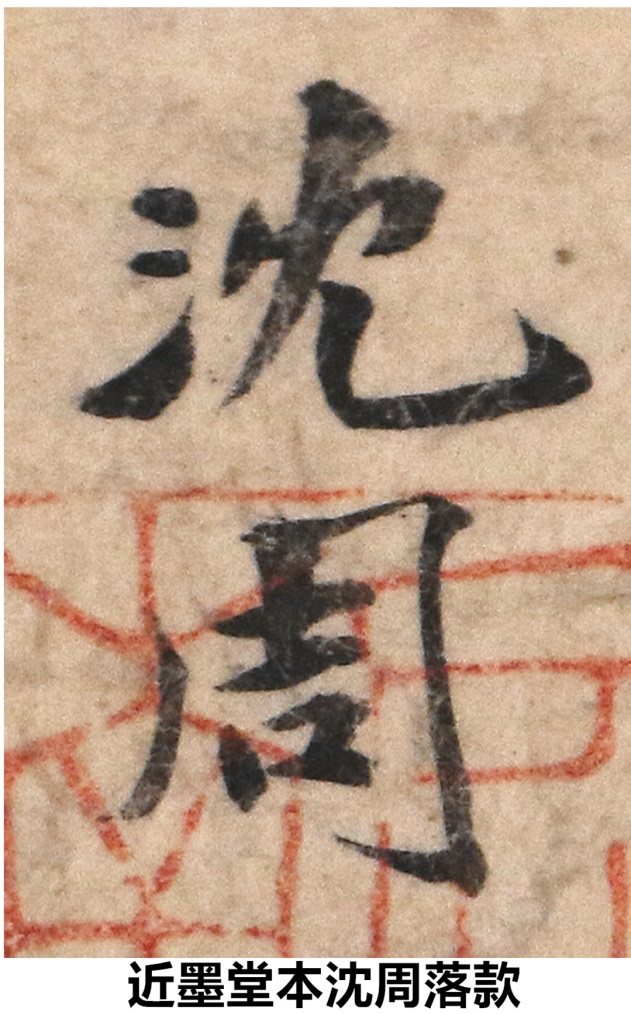 沈
周
近墨堂本沈周落款